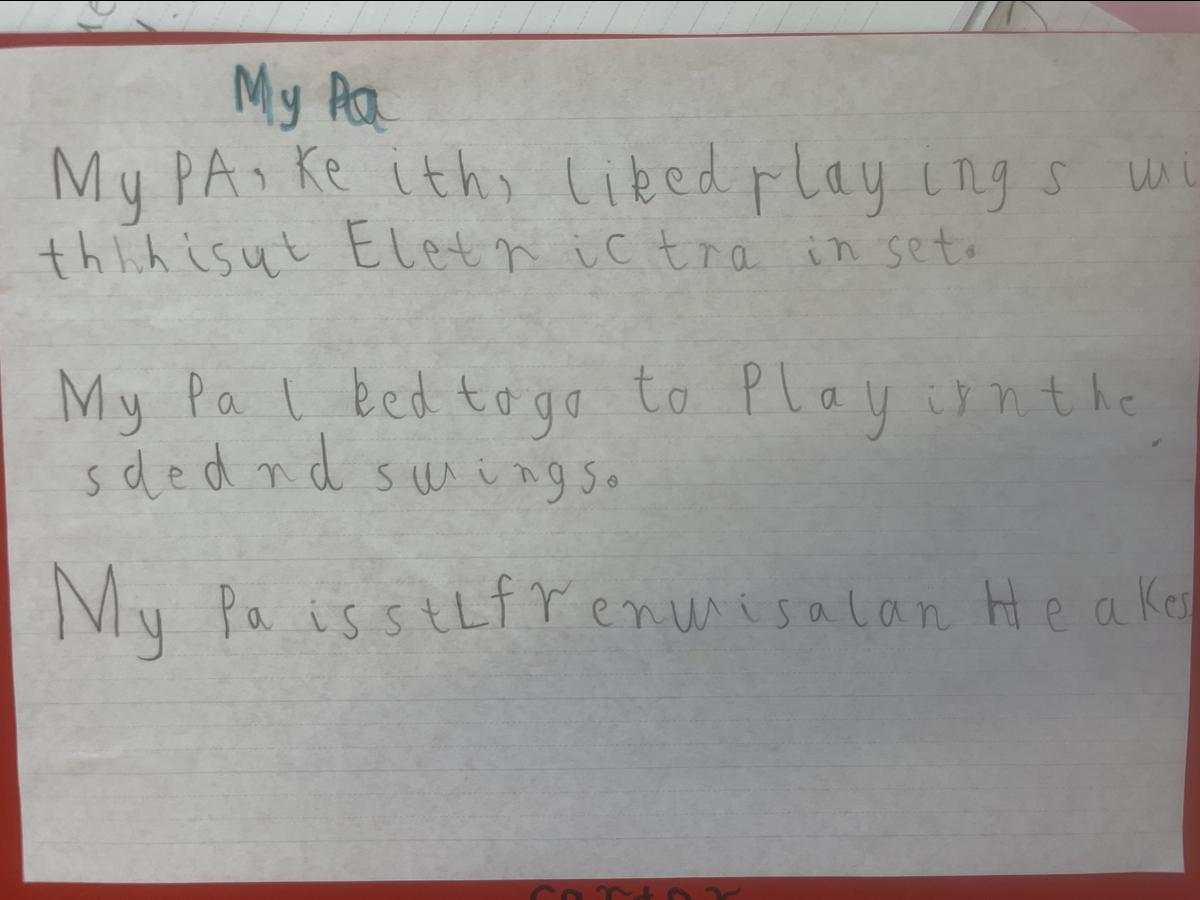 My Pa
My PA, Ke ith, liked playing s wi
thhhisut Eletr ic tra in set.
My Pa l ked togo to Play irn the
sded nd swings.
My Pa isstLfr enwisalan He akes